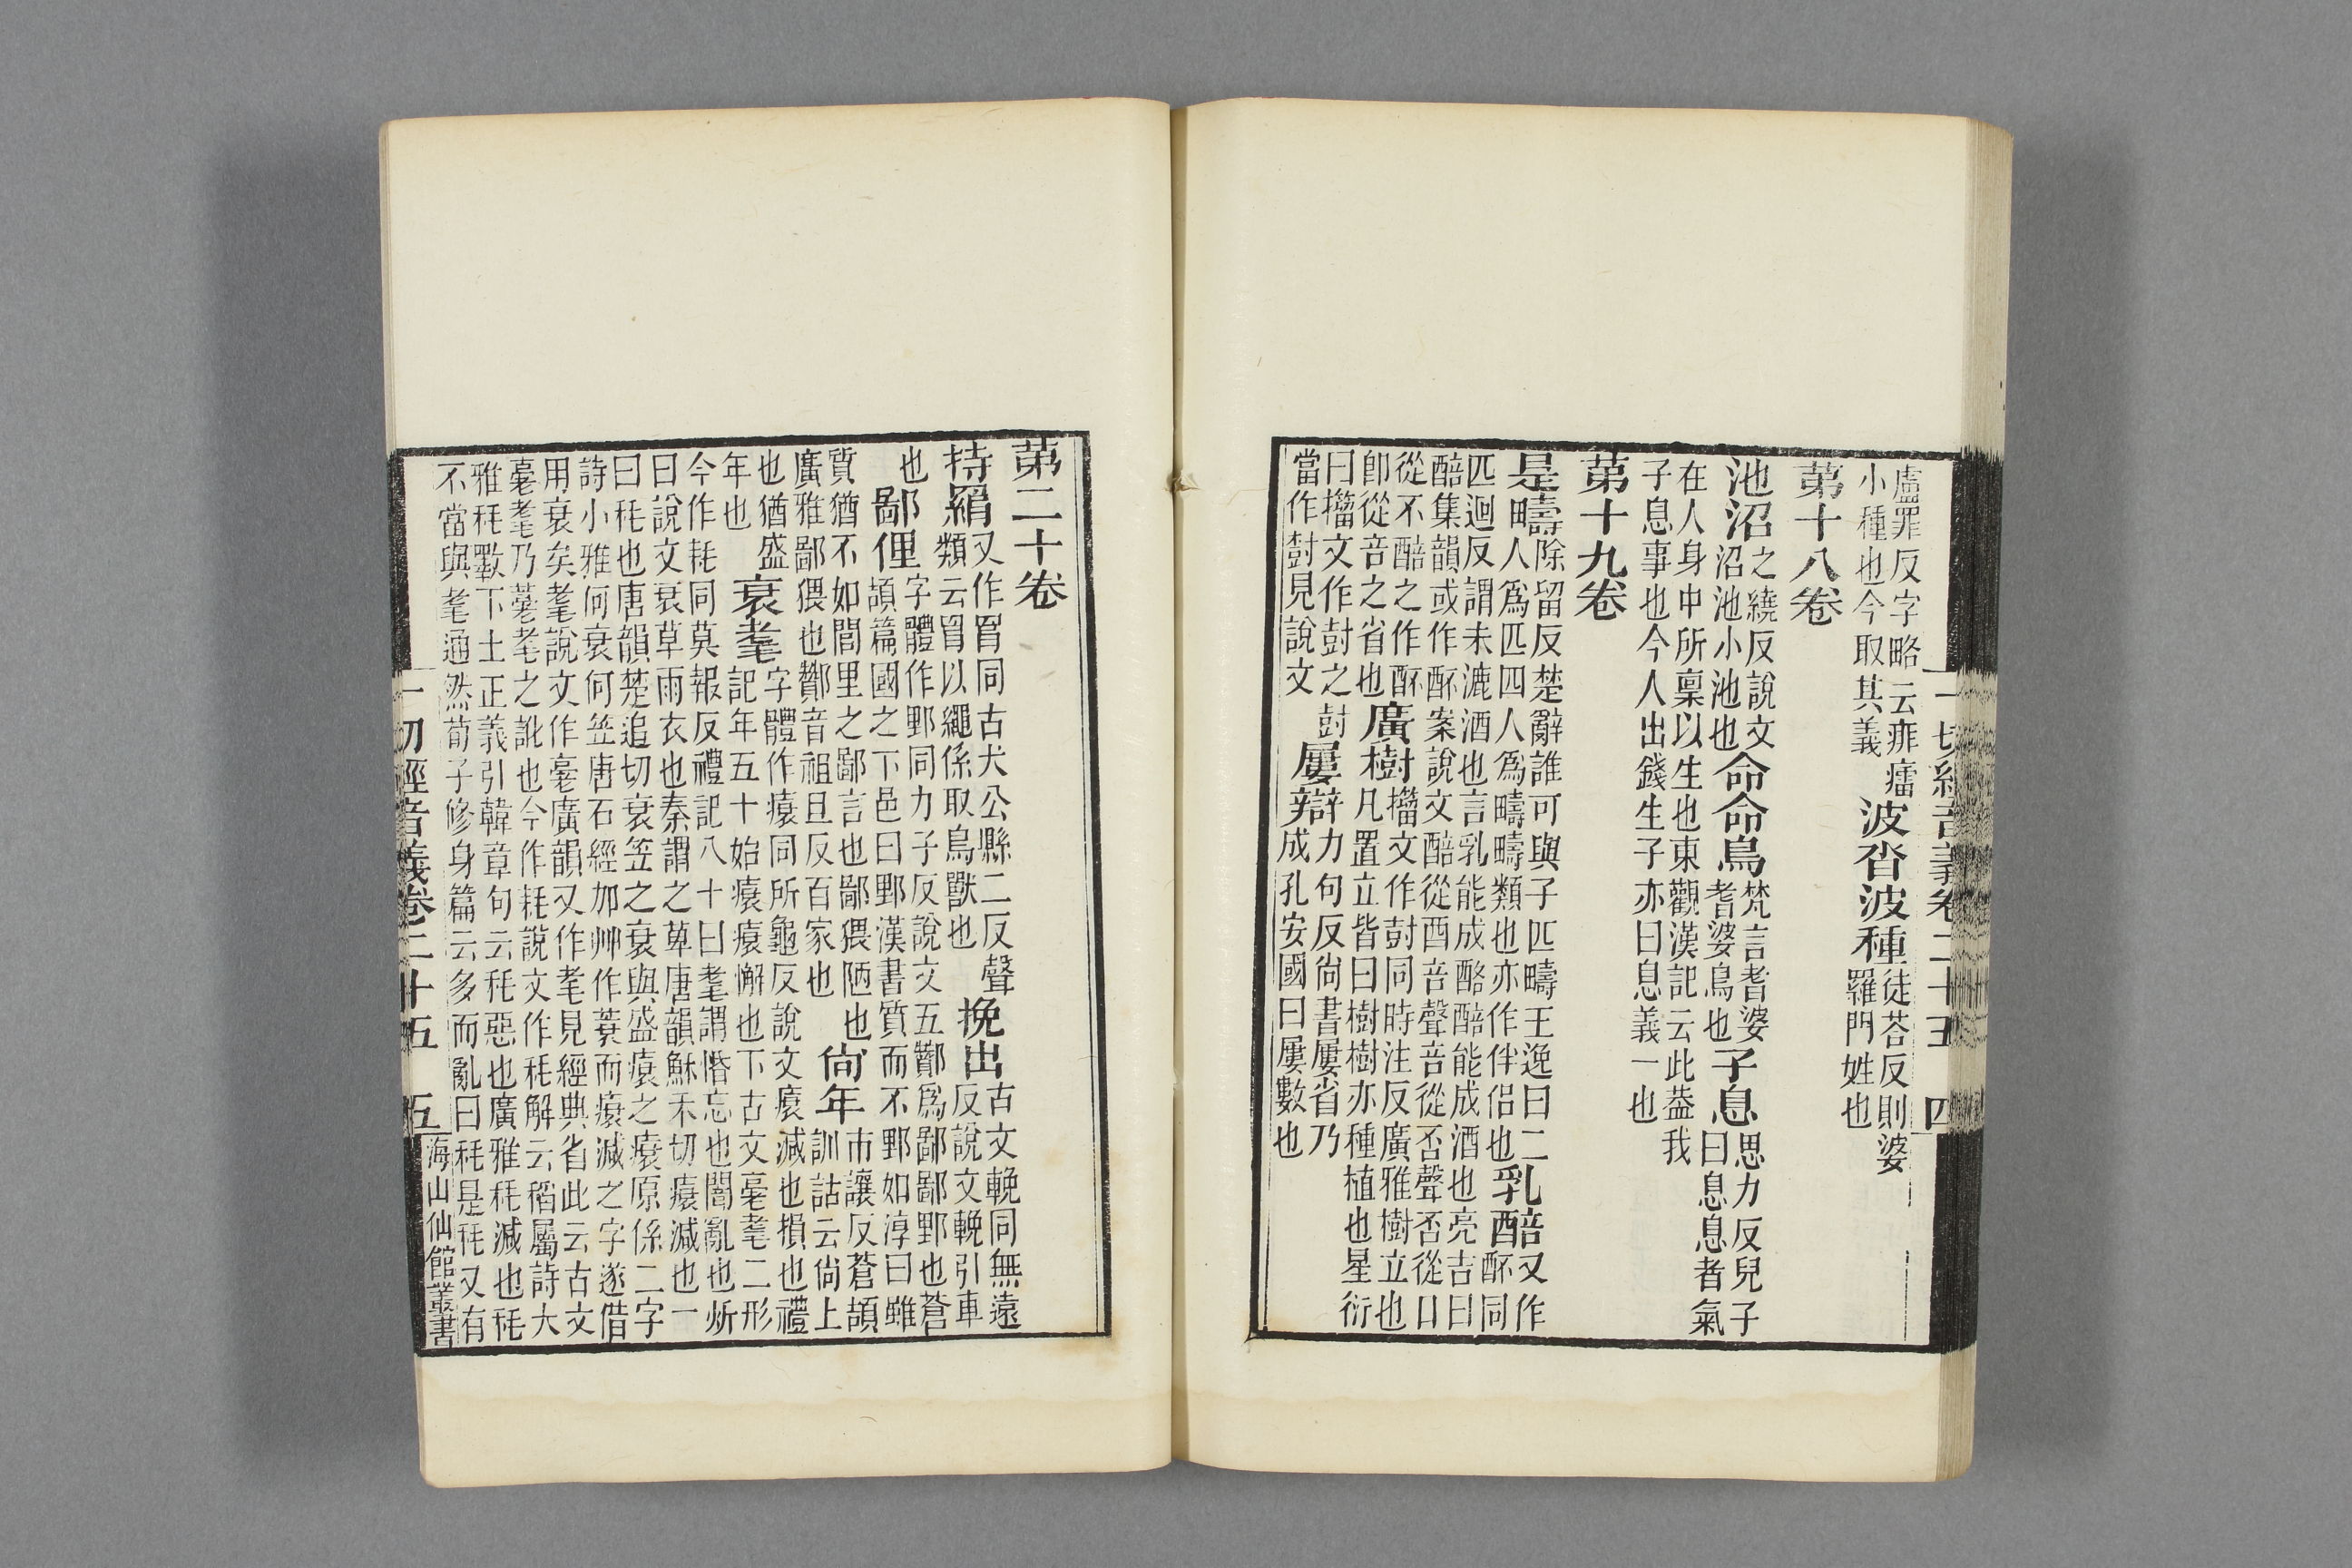 盧罪反字略云痱癗
小種也今取其義
波沓波種
徒荅反則婆
羅門姓也
第十八卷
池沼
之繞反說文
沼池小池也
命命鳥
梵言耆婆
耆婆鳥也
子息
思力反兒子
曰息息者氣
在人身中所稟以生也東觀漢記云此葢我
子息事也今人出錢生子亦曰息義一也
第十九卷
是疇
除留反楚辭誰可與子匹疇王逸曰二
人爲匹四人爲疇疇類也亦作伴侣也
乳醅
又作
酥同
匹迴反謂未漉酒也言乳能成酪醅能成酒也亮吉曰
醅集韻或作酥案說文醅從酉咅聲咅從否聲否從口
從不醅之作酥
卽從咅之省也
廣樹
籀文作尌同時注反廣雅樹立也
凡置立皆曰樹樹亦種植也星衍
曰籀文作尌之尌
當作尌見說文
屢辯
力句反尙書屢省乃
成孔安國曰屢數也
一切經音義卷二十五 四
第二十卷
持羂
又作罥同古犬公縣二反聲
類云罥以繩係取鳥獸也
挽出
古文輓同無遠
反說文輓引車
也
鄙俚
字體作野同力子反說文五酇爲鄙鄙野也蒼
頡篇國之下邑曰野漢書質而不野如淳曰雖
質猶不如閭里之鄙言也鄙猥陋也
廣雅鄙猥也酇音祖旦反百家也
尙年
市讓反蒼頡
訓詁云尙上
也猶盛
年也
衰耄
字體作㾊同所龜反說文㾊減也損也禮
記年五十始㾊㾊懈也下古文薹耄二形
今作耗同莫報反禮記八十曰耄謂惛忘也闇亂也炘
曰說文衰草雨衣也秦謂之萆唐韻穌禾切㾊減也一
曰秏也唐韻楚追切衰笠之衰與盛㾊之㾊原係二字
詩小雅何衰何笠唐石經加艸作蓑而㾊減之字遂借
用衰矣耄說文作薹廣韻又作耄見經典省此云古文
薹耄乃薹耄之訛也今作耗說文作秏解云稻屬詩大
雅秏斁下土正義引韓章句云秏惡也廣雅秏減也秏
不當與耄通然荀子修身篇云多而亂曰秏是秏又有
一切經音義卷二十五 五
海山仙館叢書